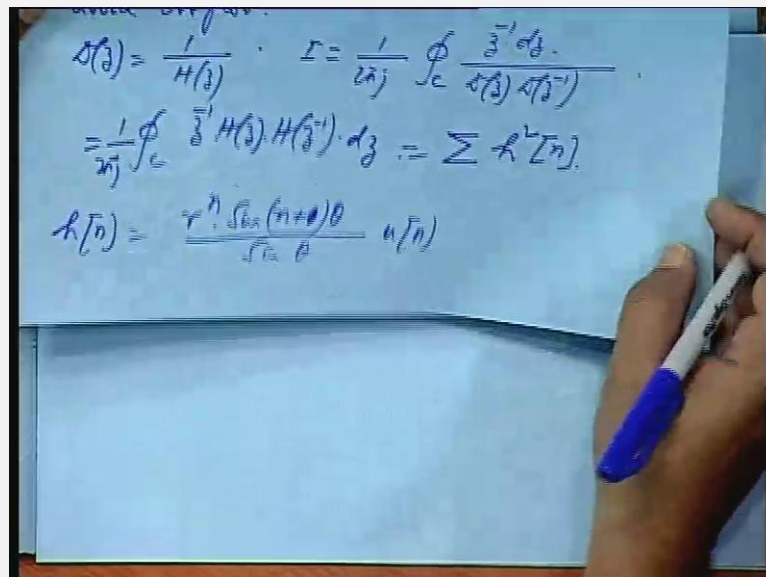 D(z) = 1/H(z) . I = 1/2πj ∮c z⁻¹ dz. / D(z) D(z⁻¹) .
= 1/2πj ∮c z⁻¹ H(z). H(z⁻¹). dz := Σ h²[n].
h[n] = rⁿ. Sin (n+1)θ / Sin θ u[n]